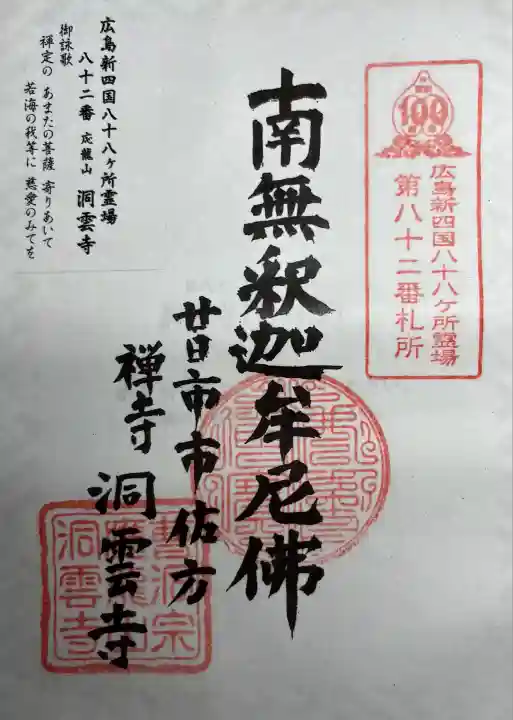 100
広島新四国八十八ケ所霊場
第八十二番札所
南無釈迦牟尼佛
廿日市市佐方
禅寺 洞雲寺
広島新四国八十八ヶ所霊場
八十二番 応龍山 洞雲寺
御詠歌
禅定の あまたの菩薩 寄りあいて
苦海の我等に 慈愛のみてを
曹洞宗
洞雲寺